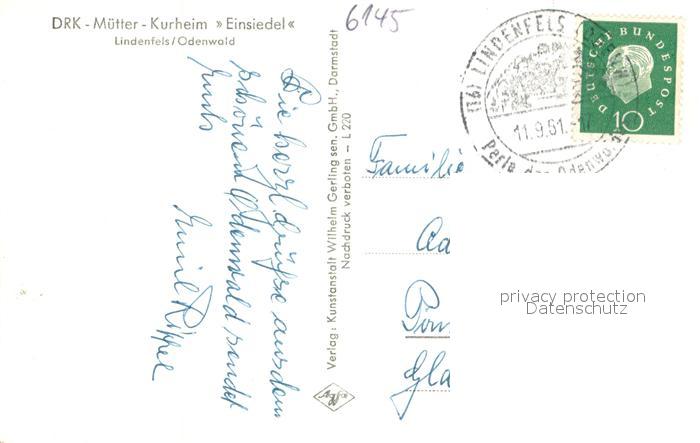 DRK - Mütter - Kurheim »Einsiedel«
Lindenfels/Odenwald
6145
Die herzl. Grüße aus dem
schönen Odenwald sendet
Euch
Emil Rippel
Verlag: Kunstanstalt Wilhelm Gerling sen. GmbH., Darmstadt
Nachdruck verboten – L 220
(16) LINDENFELS
11.9.61.
Perle des Odenwa
DEUTSCHE BUNDESPOST
10
Familie
Gla
privacy protection
Datenschutz